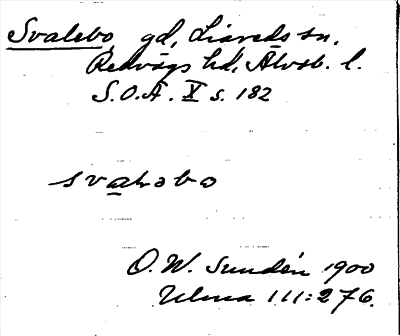 Svalebo, gd, Liareds sn,
Redvägs hd, Älvsb. l.
S.O.Ä. X s. 182
O. W. Sundén 1900
Ulma 111:276.